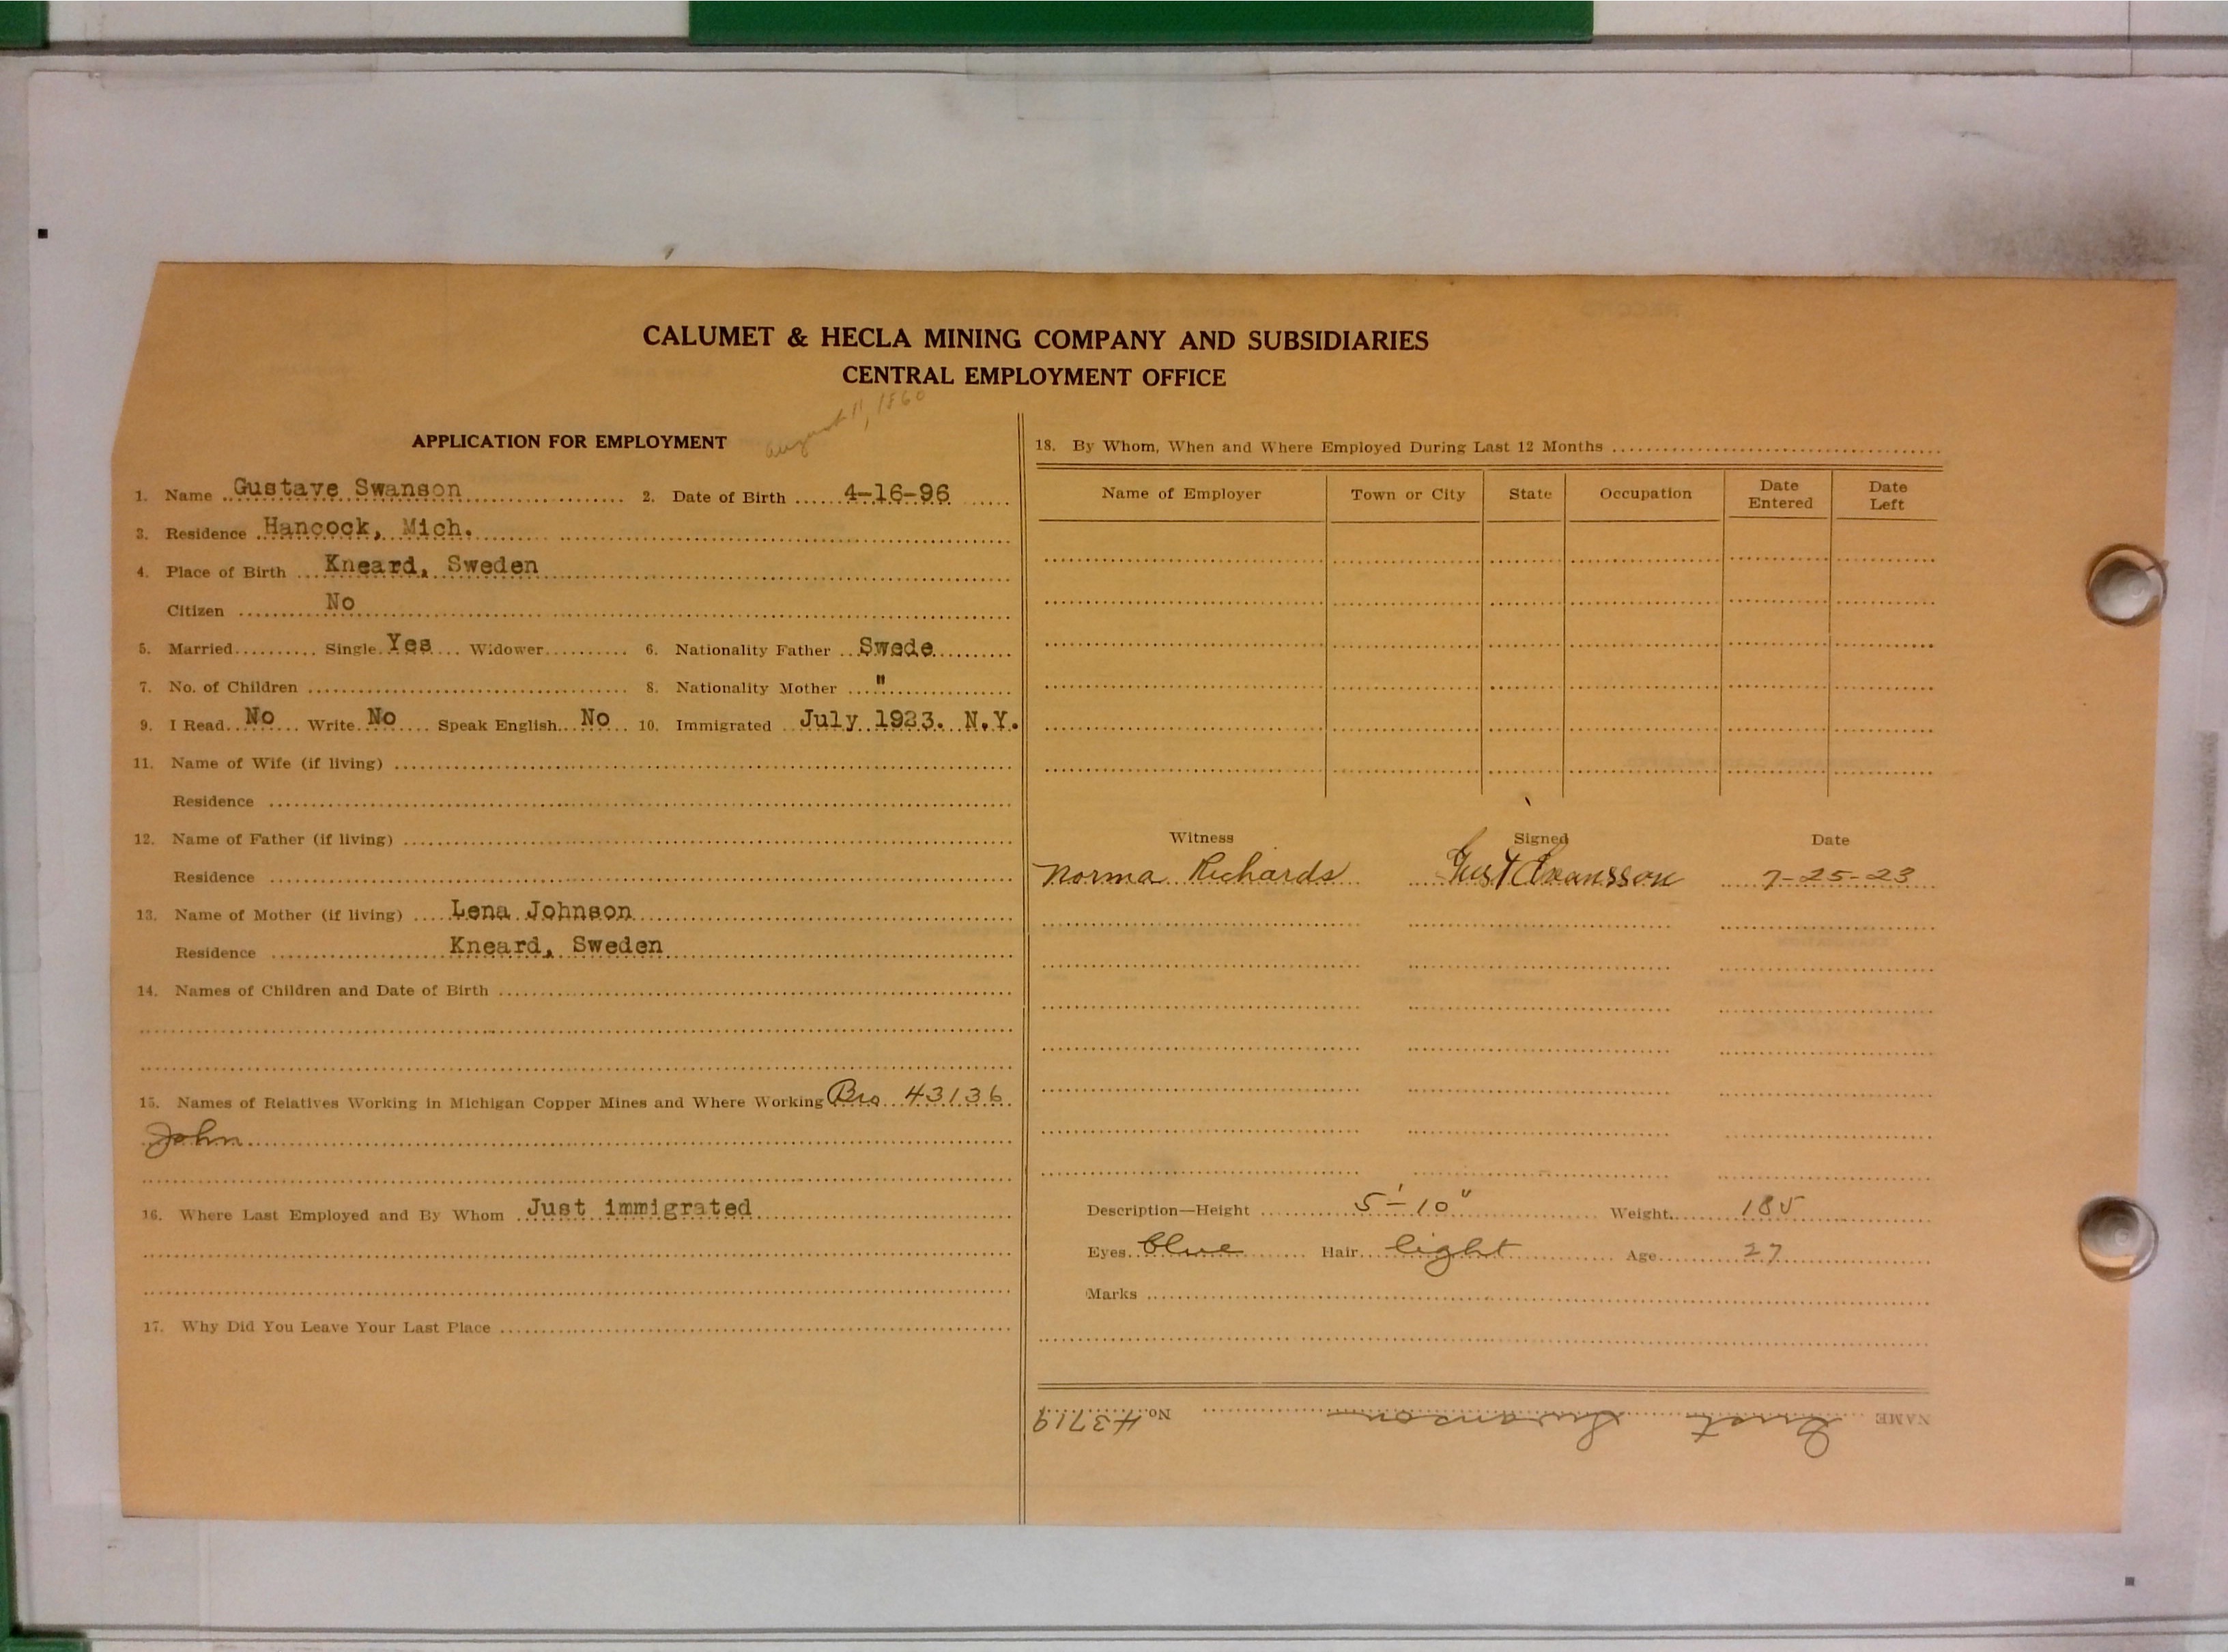 CALUMET & HECLA MINING COMPANY AND SUBSIDIARIES
CENTRAL EMPLOYMENT OFFICE
August 11, 1860
APPLICATION FOR EMPLOYMENT
1. Name Gustave Swanson 2. Date of Birth 4-16-96
3. Residence Hancock, Mich.
4. Place of Birth Kneard, Sweden
Citizen No
5. Married Single Yes Widower 6. Nationality Father Swede
7. No. of Children 8. Nationality Mother "
9. I Read No Write No Speak English No 10. Immigrated July 1923. N.Y.
11. Name of Wife (if living)
Residence
12. Name of Father (if living)
Residence
13. Name of Mother (if living) Lena Johnson
Residence Kneard, Sweden
14. Names of Children and Date of Birth
15. Names of Relatives Working in Michigan Copper Mines and Where Working Bro 43136
John
16. Where Last Employed and By Whom Just immigrated
17. Why Did You Leave Your Last Place
18. By Whom, When and Where Employed During Last 12 Months
Name of Employer Town or City State Occupation Date Entered Date Left
Witness Signed Date
Norma Richards Gust Svansson 7-25-23
Description—Height 5'-10" Weight 185
Eyes blue Hair light Age 27
Marks
NAME Gust Swanson No. 43719